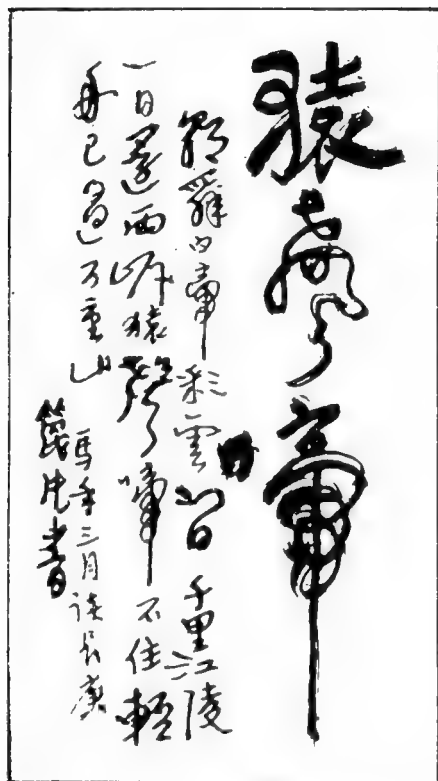 猿聲啼
朝辭白帝彩雲間千里江陵
一日還兩岸猿聲啼不住輕
舟已過万重山
馬年三月
書